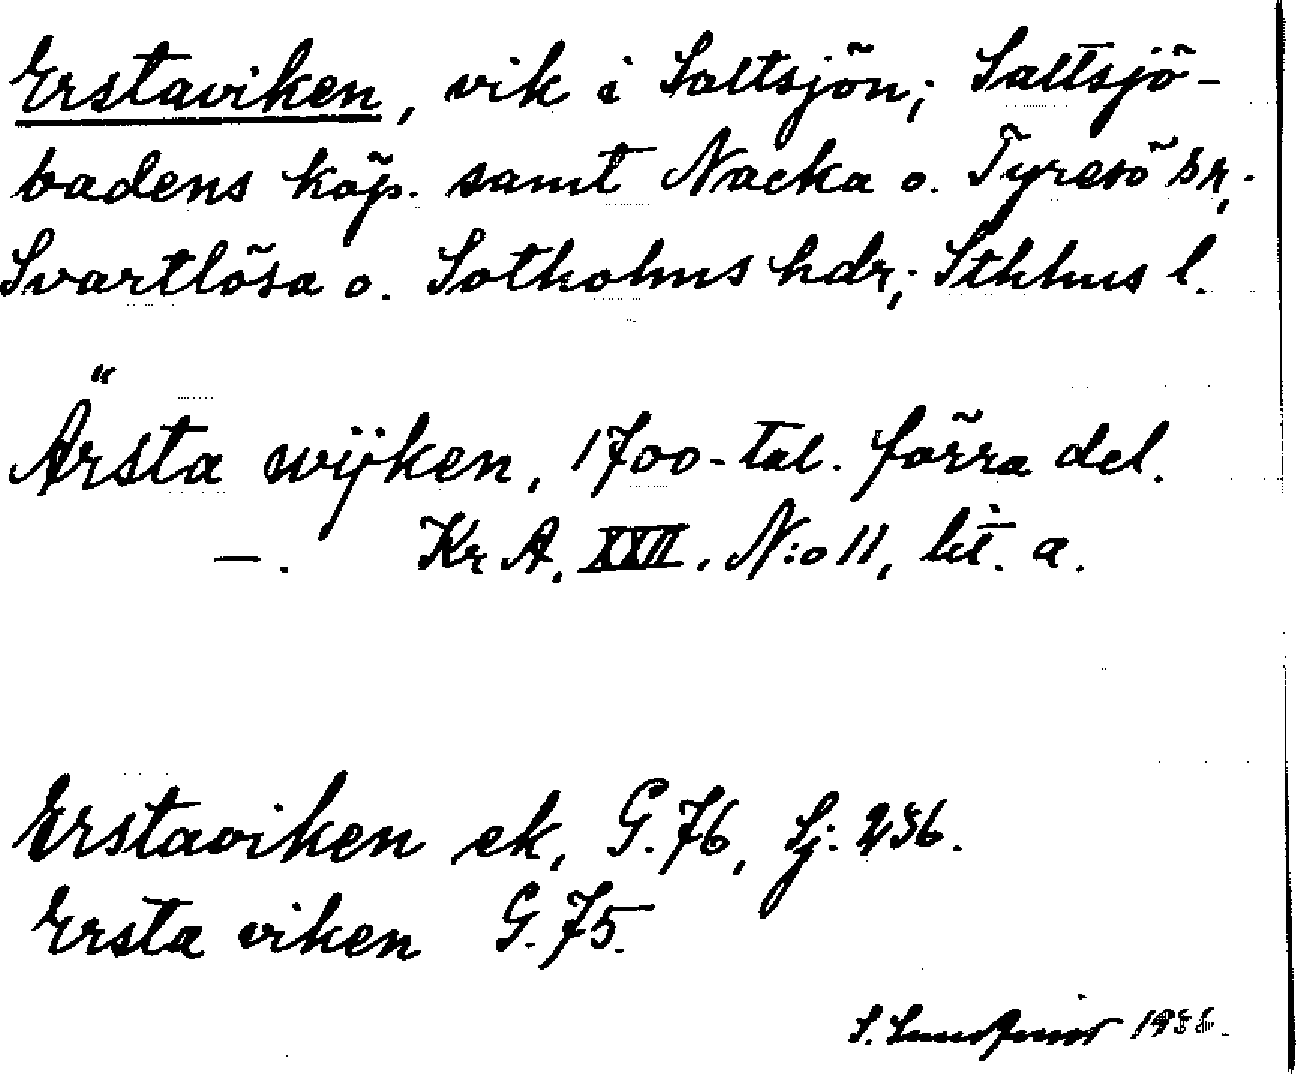 Erstaviken, vik i Saltsjön; Saltsjö-
badens köp. samt Nacka o. Tyresö snr,
Svartlösa o. Sotholms hdr; Sthlms l.
Ärsta wijken, 1700-tal. förra del.
—. Kr A, XXII. N:o 11, lit. a.
Erstaviken ek, G. 76, Sj: 236.
Ersta viken G. 75.
S.